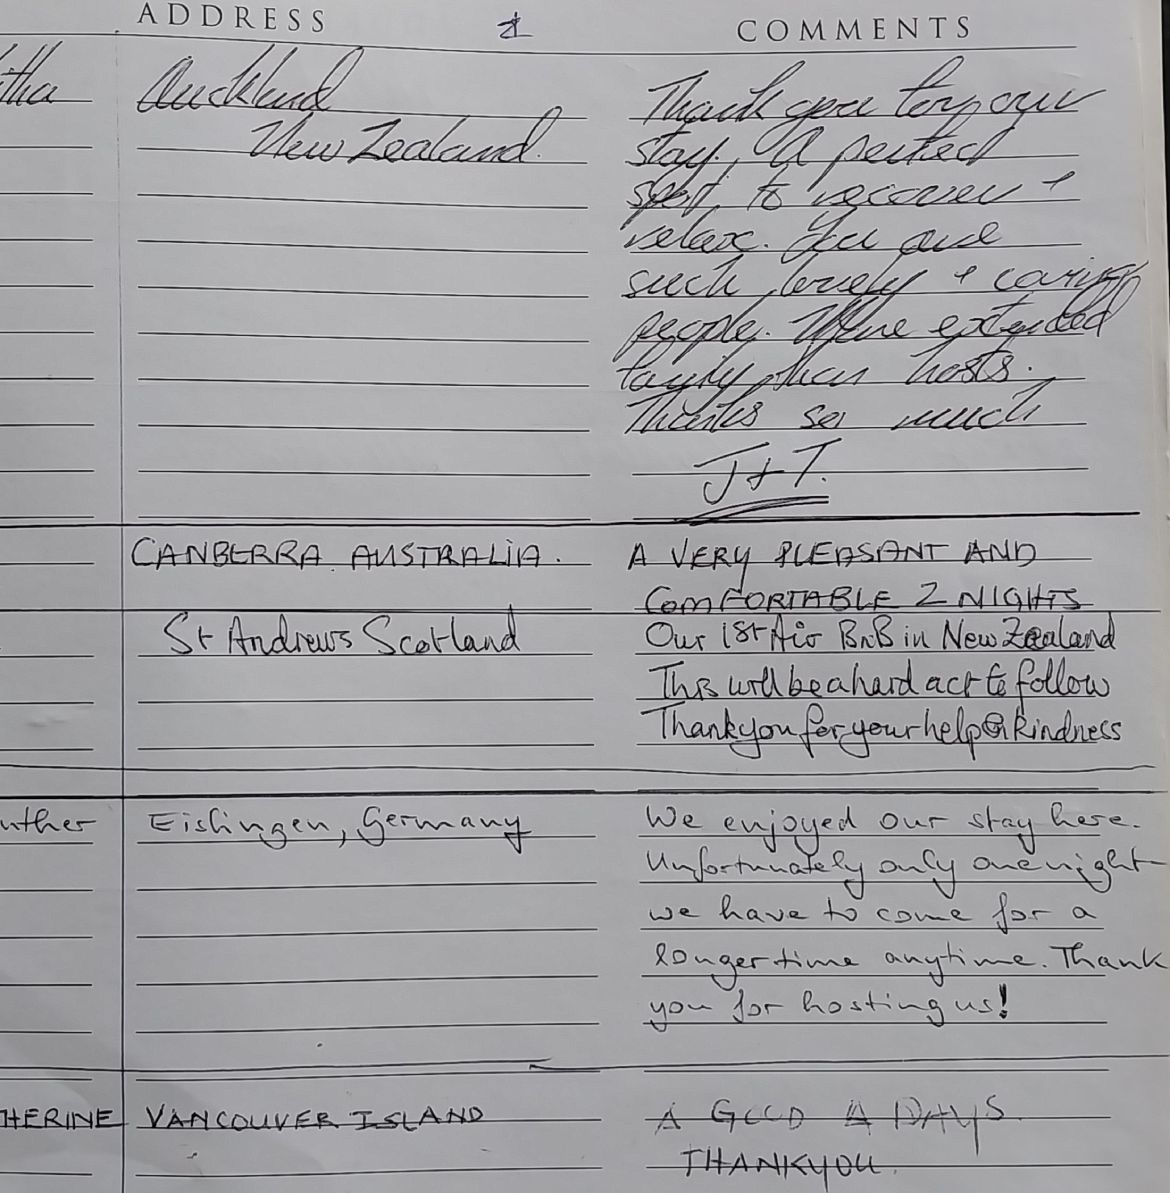 ADDRESS COMMENTS
tha Auckland Thank you for your
New Zealand. stay. A perfect
spot to recover +
relax. You are
such lovely + caring
people. More extended
family than hosts.
Thanks so much
J+T.
CANBERRA AUSTRALIA. A VERY PLEASANT AND
COMFORTABLE 2 NIGHTS
St Andrews Scotland Our 1st Air BnB in New Zealand
This will be a hard act to follow
Thankyou for your help & kindness
uther Eislingen, Germany We enjoyed our stay here.
Unfortunately only one night
we have to come for a
longer time anytime. Thank
you for hosting us!
HERINE VANCOUVER ISLAND A GOOD 4 DAYS.
THANKYOU.